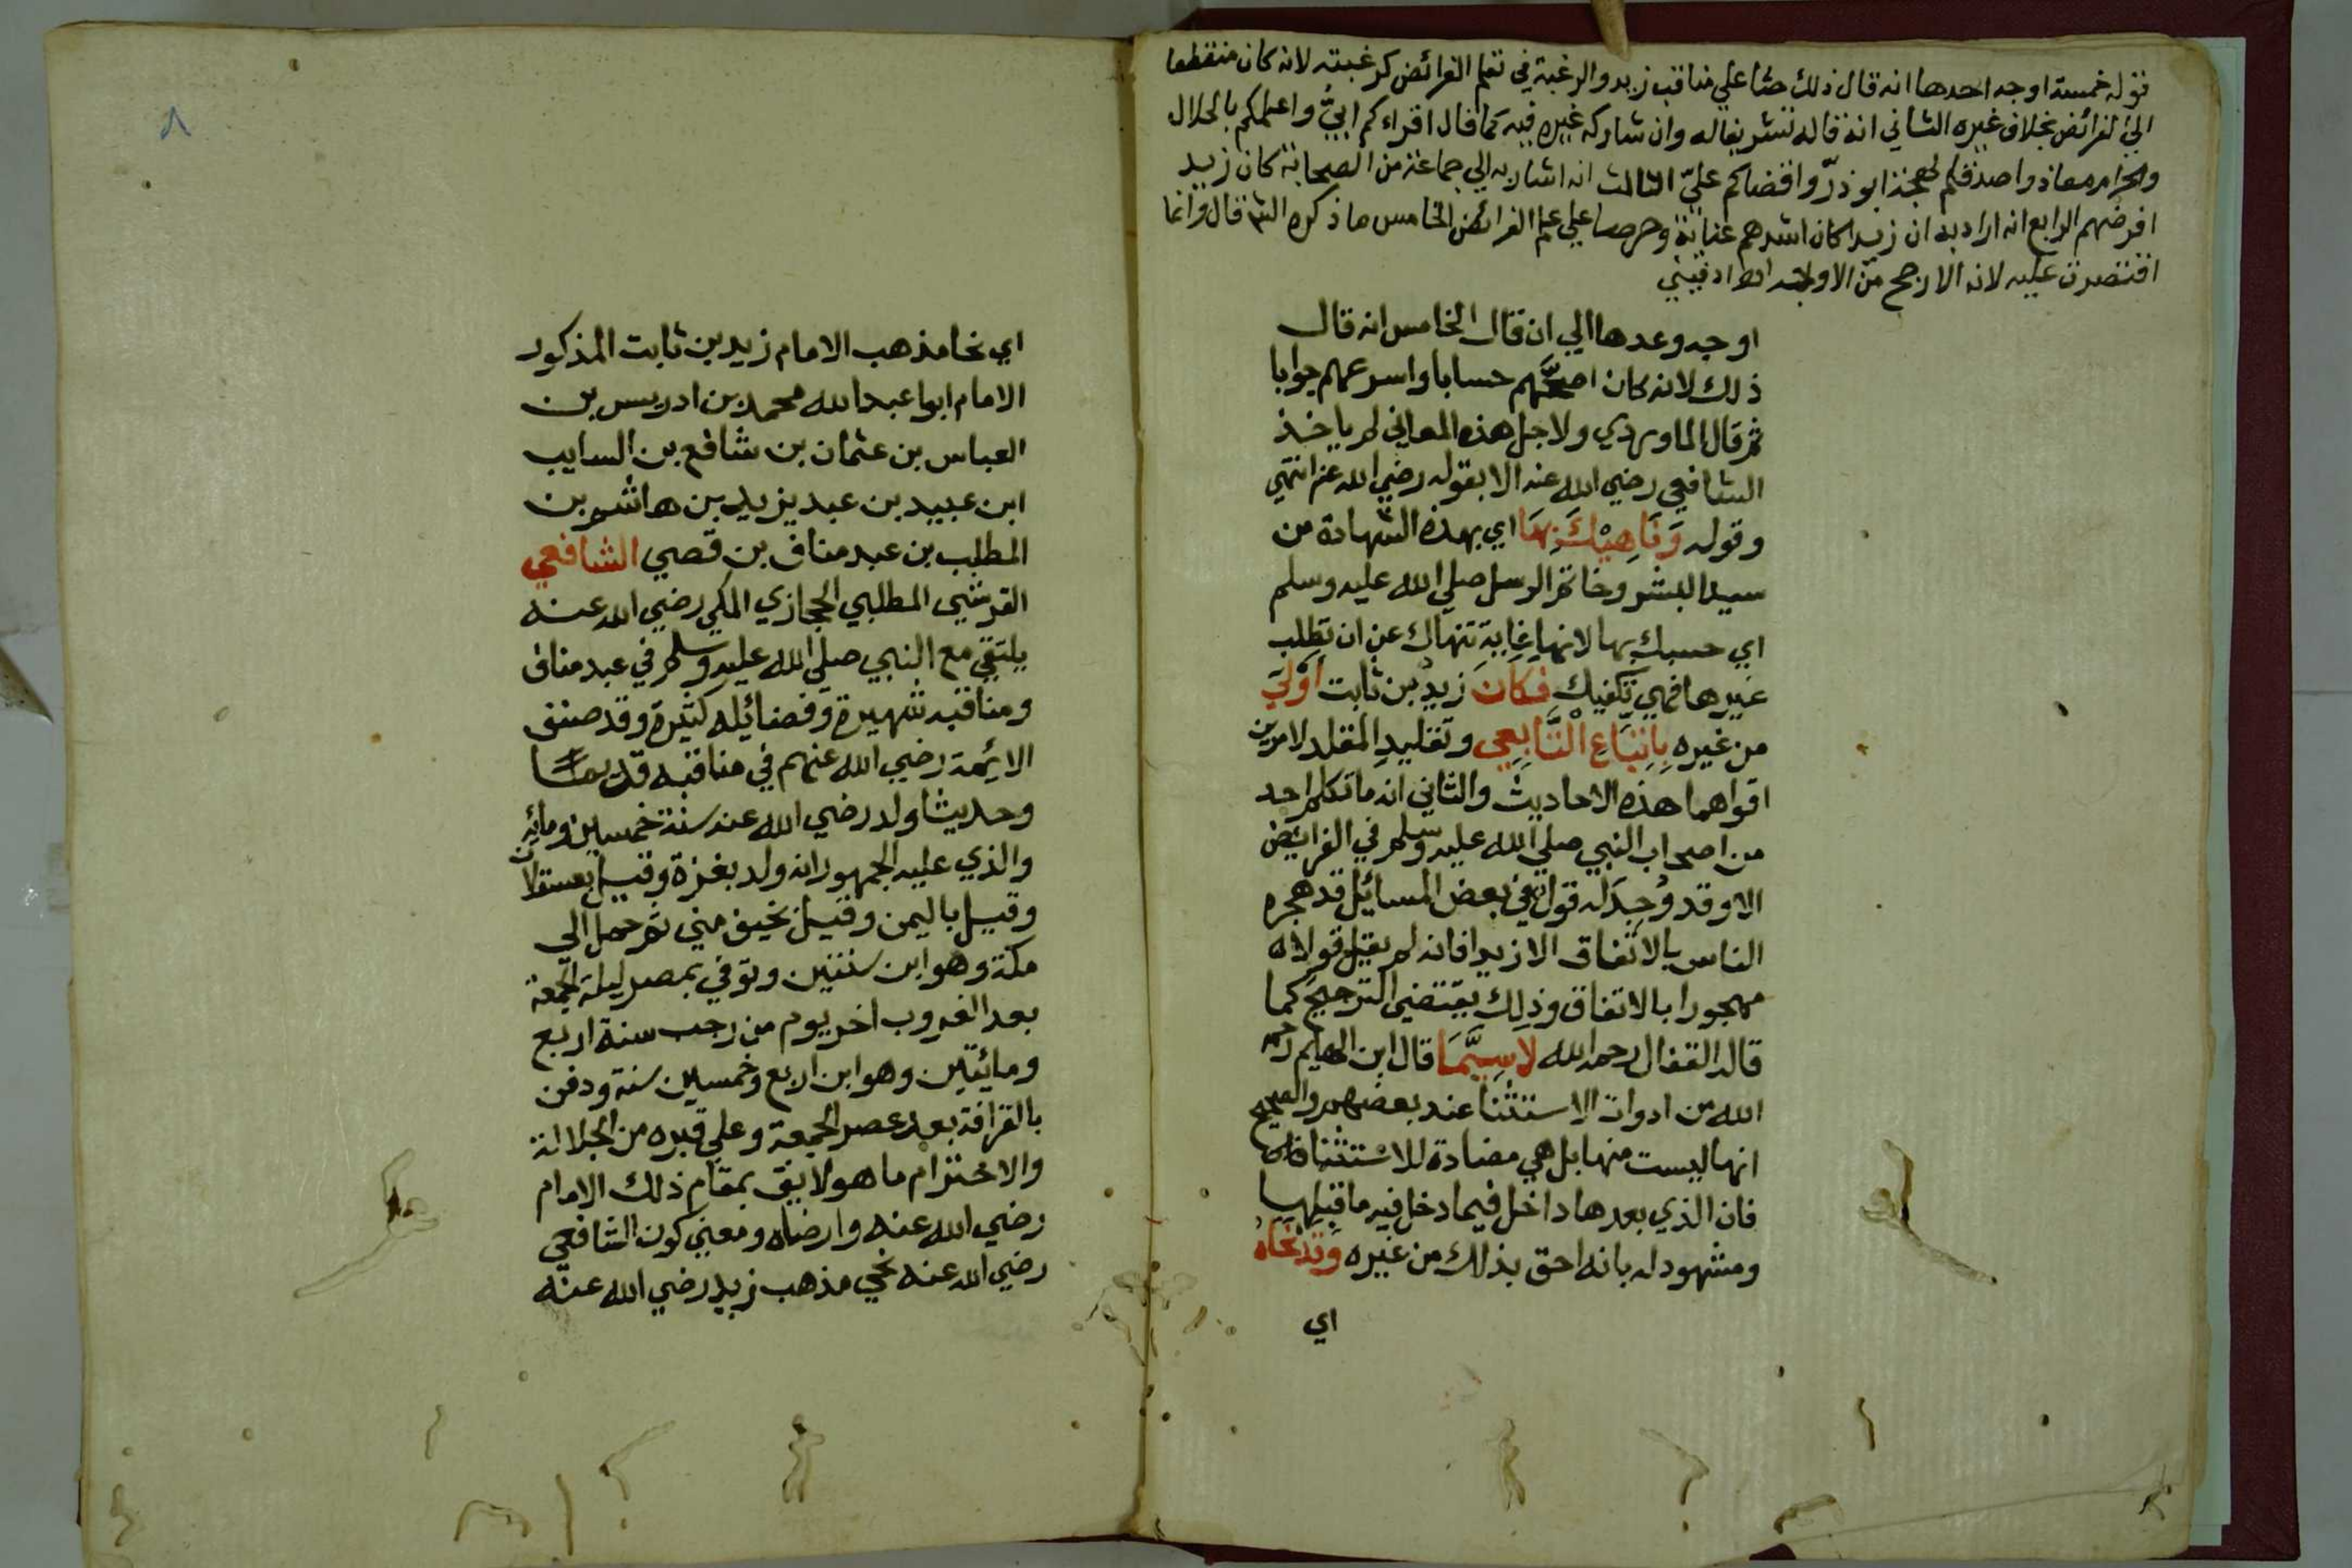 قوله خمسة اوجه احدها انه قال ذلك حثا علي مناقب زيد والرغبة في تعلم الفرائض كرغبته لانه كان منقطعا
الي الفرائض بخلاف غيره الثاني انه قاله تشريفا له وان شاركه غيره فيه كما قال اقراءكم ابيّ واعلمكم بالحلال
والحرام معاذ واصدقكم لهجة ابو ذرّ واقضاكم عليّ الثالث انه اشار به الي جماعة من الصحابة كان زيد
افرضهم الرابع انه اراد به ان زيدا كان اشدهم عناية وحرصا علي علم الفرائض الخامس ما ذكره الش قال وانما
اقتصرت عليه لانه الارجح من الاوجه
اوجه وعدها الي ان قال الخامس انه قال
ذلك لانه كان اصحَّهم حسابا واسرعهم جوابا
ثم قال الماوردي ولاجل هذه المعاني لم ياخذ
الشافعي رضي الله عنه الا بقوله رضي الله عنه انتهي
وقوله وَنَاهِيْكَ بِهَا اي بهذه الشهادة من
سيد البشر وخاتم الرسل صلي الله عليه وسلم
اي حسبك بها لانها غاية تنهاك عن ان تطلب
غيرها فهي تكفيك فكان زيد بن ثابت اَوْلَي
من غيره بِاتِّبَاعِ التَّابِعِي وتقليد المقلد لامرين
اقواهما هذه الاحاديث والثاني انه ما تكلم احد
من اصحاب النبي صلي الله عليه وسلم في الفرايض
الا وقد وُجِدَ له قول في بعض المسائل قد هجره
الناس بالاتفاق الا زيدا فانه لم يقل قولا
مهجورا بالاتفاق وذلك يقتضي الترجيح كما
قاله القفال رحمه الله لاسِيَّمَا قال ابن الهايم رحمه
الله من ادوات الاستثنا عند بعضهم والصحيح
انها ليست منها بل هي مضادة للاستثنا
فان الذي بعدها داخل فيما دخل فيه ما قبلها
ومشهود له بانه احق بذلك من غيره وَقَدْ نَحَاهُ
اي
٨
اي نحا مذهب الامام زيد بن ثابت المذكور
الامام ابوا عبد الله محمد بن ادريس بن
العباس بن عثمان بن شافع بن السايب
ابن عبيد بن عبد يزيد بن هاشم بن
المطلب بن عبد مناف بن قصي الشافعي
القرشي المطلبي الحجازي المكي رضي الله عنه
يلتقي مع النبي صلي الله عليه وسلم في عبد مناف
ومناقبه شهيرة وفضائله كثيرة وقد صنف
الايمة رضي الله عنهم في مناقبه قديما
وحديثا ولد رضي الله عنه سنة خمسين ومائة
والذي عليه الجمهور انه ولد بغزة وقيل بعسقلان
وقيل باليمن وقيل بخيف مني ثم حمل الي
مكة وهو ابن سنتين وتوفي بمصر ليلة الجمعة
بعد الغروب اخر يوم من رجب سنة اربع
ومائتين وهو ابن اربع وخمسين سنة ودفن
بالقرافة بعد عصر الجمعة وعلي قبره من الجلالة
والاحترام ما هو لايق بمقام ذلك الامام
رضي الله عنه وارضاه ومعني كون الشافعي
رضي الله عنه نحي مذهب زيد رضي الله عنه